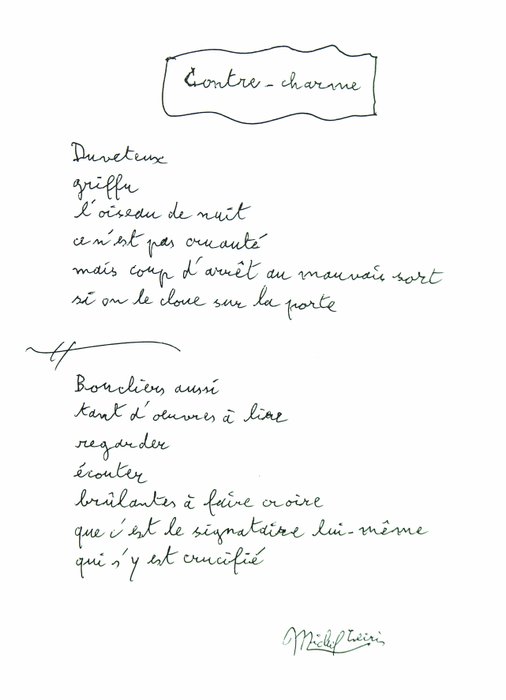 Contre-charme
Duveteux
griffu
l'oiseau de nuit
ce n'est pas cruauté
mais coup d'arrêt au mauvais sort
si on le cloue sur la porte
Boucliers aussi
tant d'oeuvres à lire
regarder
écouter
brûlantes à faire croire
que c'est le signataire lui-même
qui s'y est crucifié
Michel Leiris